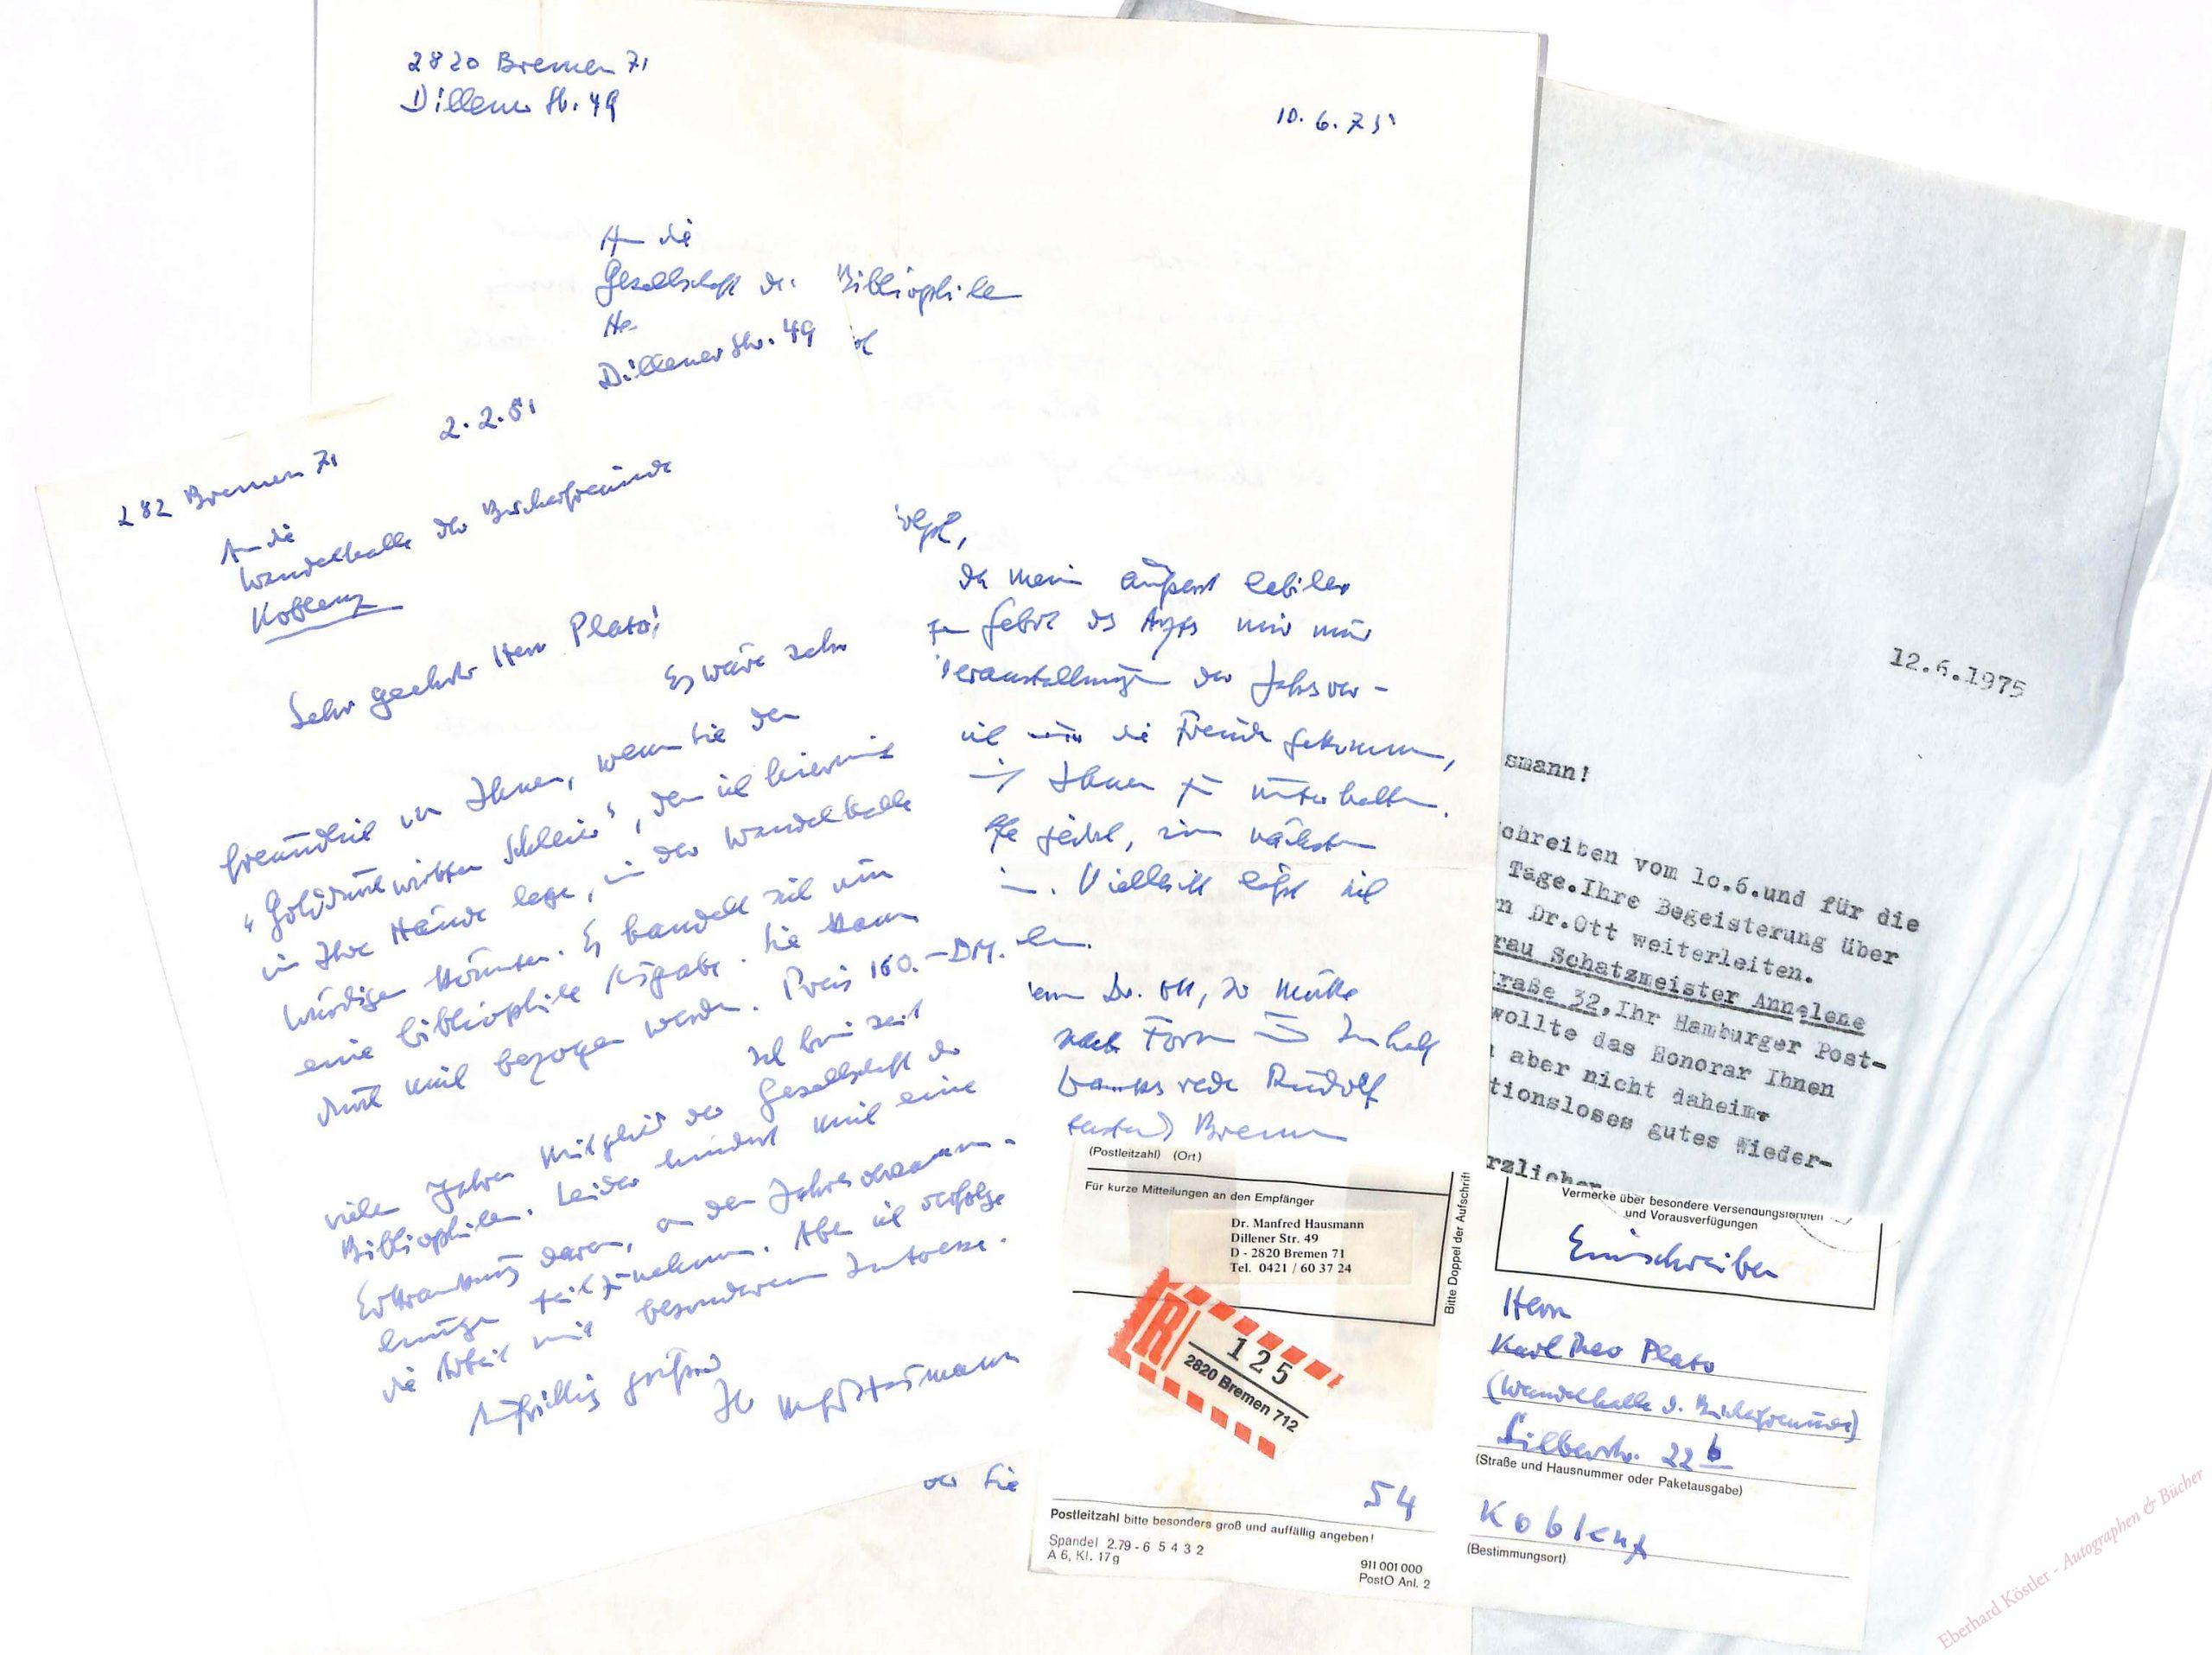 2820 Bremen 71
Dillener Str. 49
10.6.75
An die
Gesellschaft der Bibliophilen
Dillener Str. 49
282 Bremen 71
2.2.81
An die
Wandelhalle der Bücherfreunde
Koblenz
Sehr geehrter Herr Plato!
Es wäre sehr
freundlich von Ihnen, wenn Sie den
"Golddurchwirkten Schleier", den ich hiermit
in Ihre Hände lege, in der Wandelhalle
würdigen könnten. Es handelt sich um
eine bibliophile Ausgabe. Sie kann
durch mich bezogen werden. Preis 160.-DM.
Ich bin seit
vielen Jahren Mitglied der Gesellschaft der
Bibliophilen. Leider hindert mich eine
Erkrankung daran, an den Jahresversamm-
lungen teilzunehmen. Aber ich verfolge
die Arbeit mit besonderem Interesse.
Aufrichtig grüßend
Ihr Manfred Hausmann
da mein äußerst labiler
auf Gebot des Arztes mir nur
Veranstaltungen der Jahresver-
ich um die Freude gekommen,
mit Ihnen zu unterhalten.
nächsten
Vielleicht läßt sich
Dr. Ott, so müßte
nach Form und Inhalt
Rudolf
Bremen
oder Sie
12.6.1975
smann!
chreiben vom 10.6.und für die
Tage.Ihre Begeisterung über
n Dr.Ott weiterleiten.
rau Schatzmeister Annelene
raße 32,Ihr Hamburger Post-
wollte das Honorar Ihnen
aber nicht daheim.
tionsloses gutes Wieder-
rzlichen
(Postleitzahl) (Ort)
Für kurze Mitteilungen an den Empfänger
Dr. Manfred Hausmann
Dillener Str. 49
D - 2820 Bremen 71
Tel. 0421 / 60 37 24
Bitte Doppel der Aufschrift
R
125
2820 Bremen 712
54
Postleitzahl bitte besonders groß und auffällig angeben!
Spandel 2.79 - 6 5 4 3 2
A 6, Kl. 17g
911 001 000
PostO Anl. 2
Vermerke über besondere Versendungsformen
und Vorausverfügungen
Einschreiben
Herrn
Karl Theo Plato
(Wandelhalle d. Bücherfreunde)
Silberstr. 22 b
(Straße und Hausnummer oder Paketausgabe)
Koblenz
(Bestimmungsort)
Eberhard Köstler - Autographen & Bücher